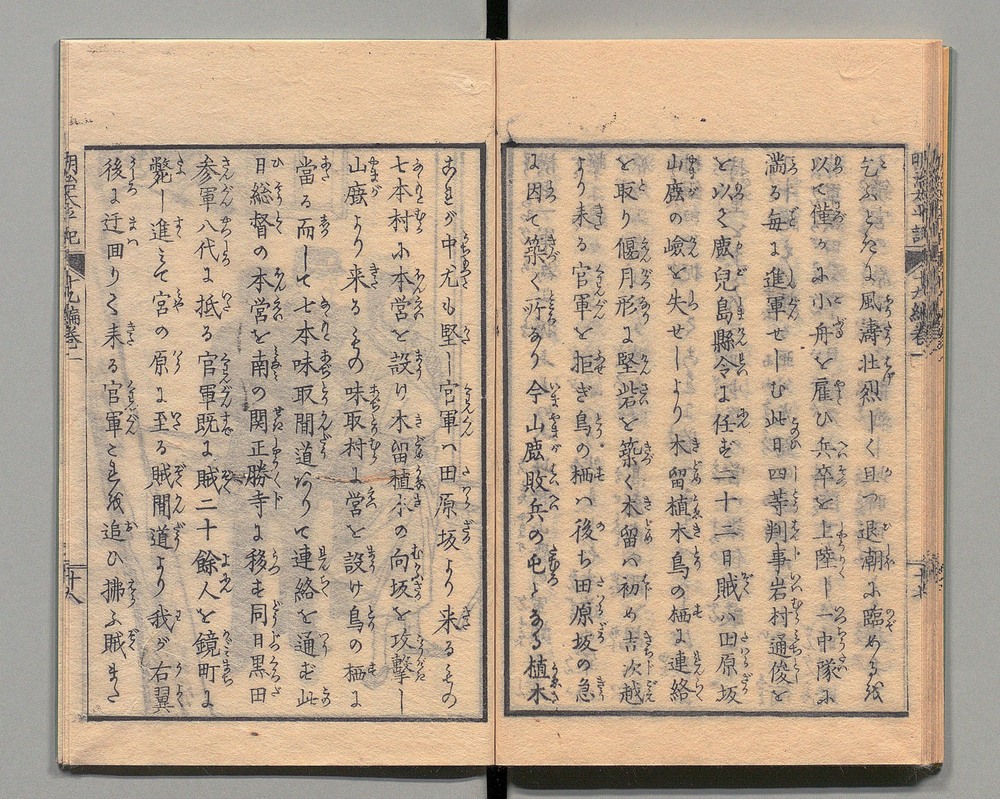 明治太平記 十九編卷一 十七
乞ふときに風濤壮烈しく且つ退潮に臨めるを
以て僅かに小舟を雇ひ兵卒を上陸し一中隊に
満る毎に進軍せしむ此日四等判事岩村通俊を
以て鹿児島縣令に任ず二十二日賊八田原坂
山鹿の嶮を失せしより木留植木鳥の栖に連絡
を取り偃月形に堅砦を築く木留ハ初め吉次越
より来る官軍を拒ぎ鳥の栖ハ後ち田原坂の急
に因て築く所あり今山鹿敗兵の屯となる植木
これが中尤も堅し官軍ハ田原坂より来るもの
七本村に本営を設け木留植木の向坂を攻撃し
山鹿より来るもの味取村に営を設け鳥の栖に
當る而して七本味取間道ありて連絡を通ず此
日総督の本営を南の関正勝寺に移す同日黒田
参軍八代に抵る官軍既に賊二十餘人を鏡町に
斃し進ミて宮の原に至る賊間道より我が右翼
後に迂回りて来る官軍これを追ひ拂ふ賊また
明治太平記 十九編卷一 十八